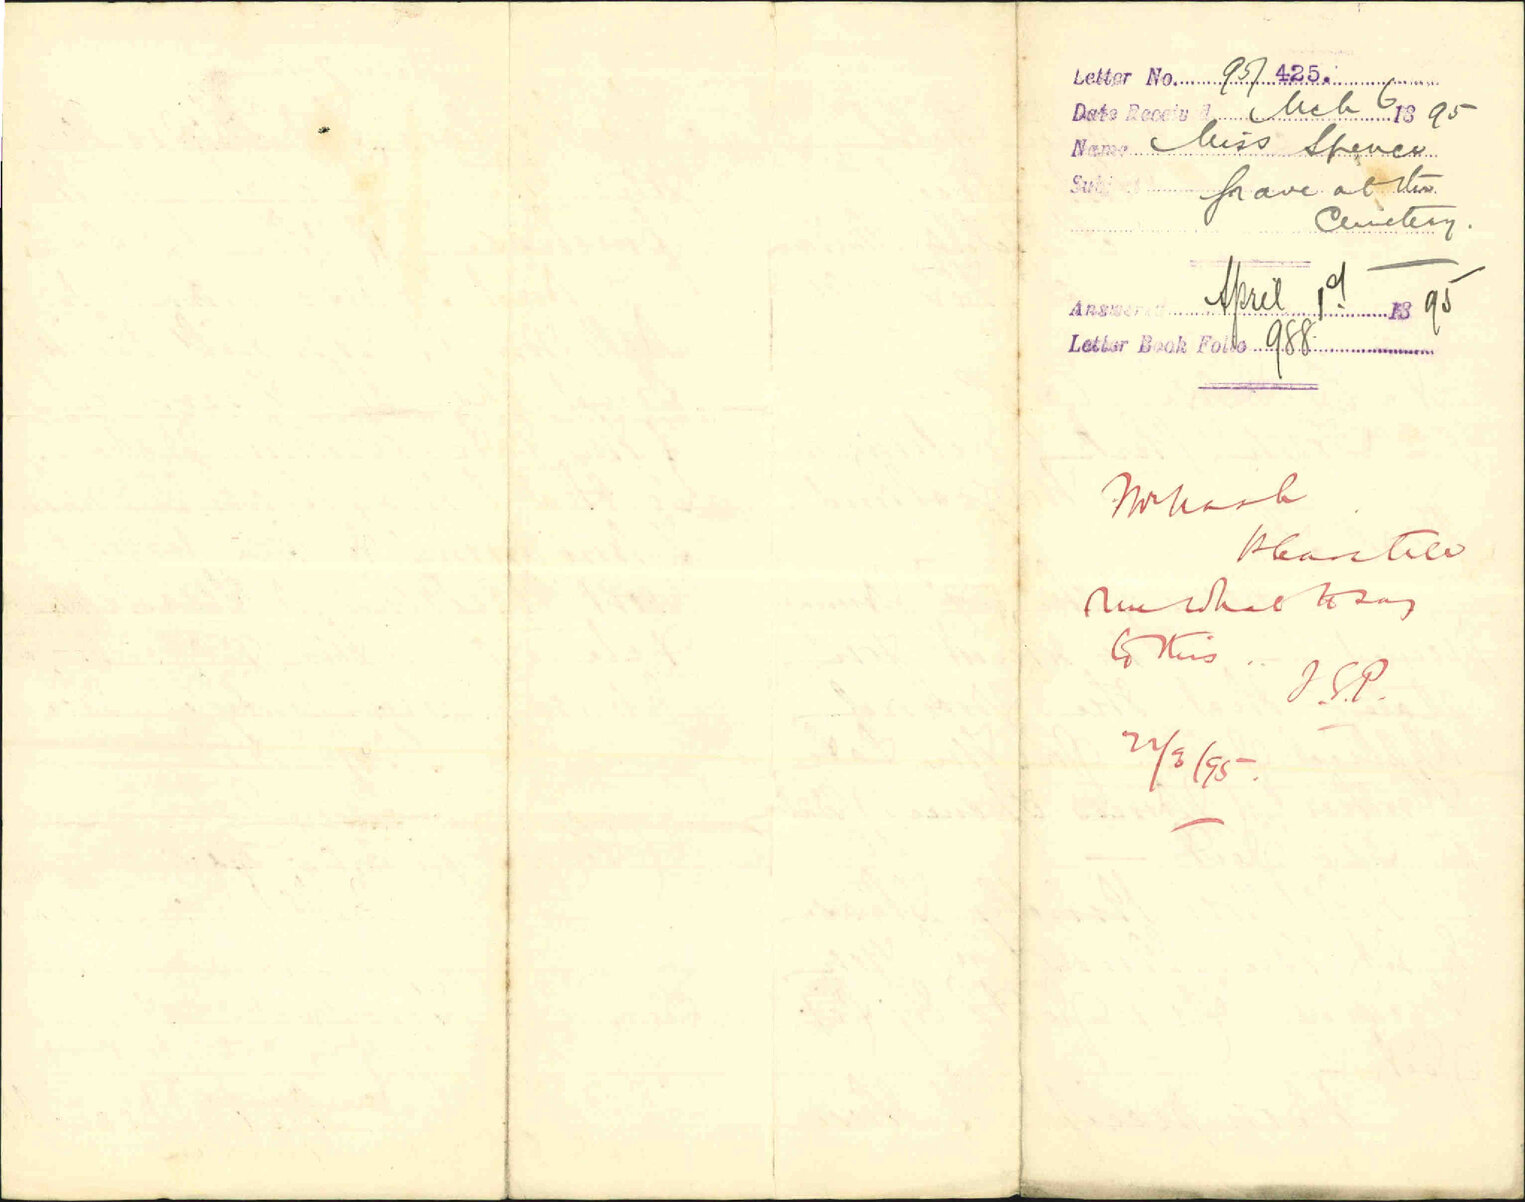 Letter No. 95/ 425.
Date Received Mch 6 1895
Name Miss Spence
Subject Grave at the
Cemetery.
Answered April 1st 1895
Letter Book Folio 988
Mr Nash
Please tell
me what to say
to this ..
J.S.P.
22/3/95.